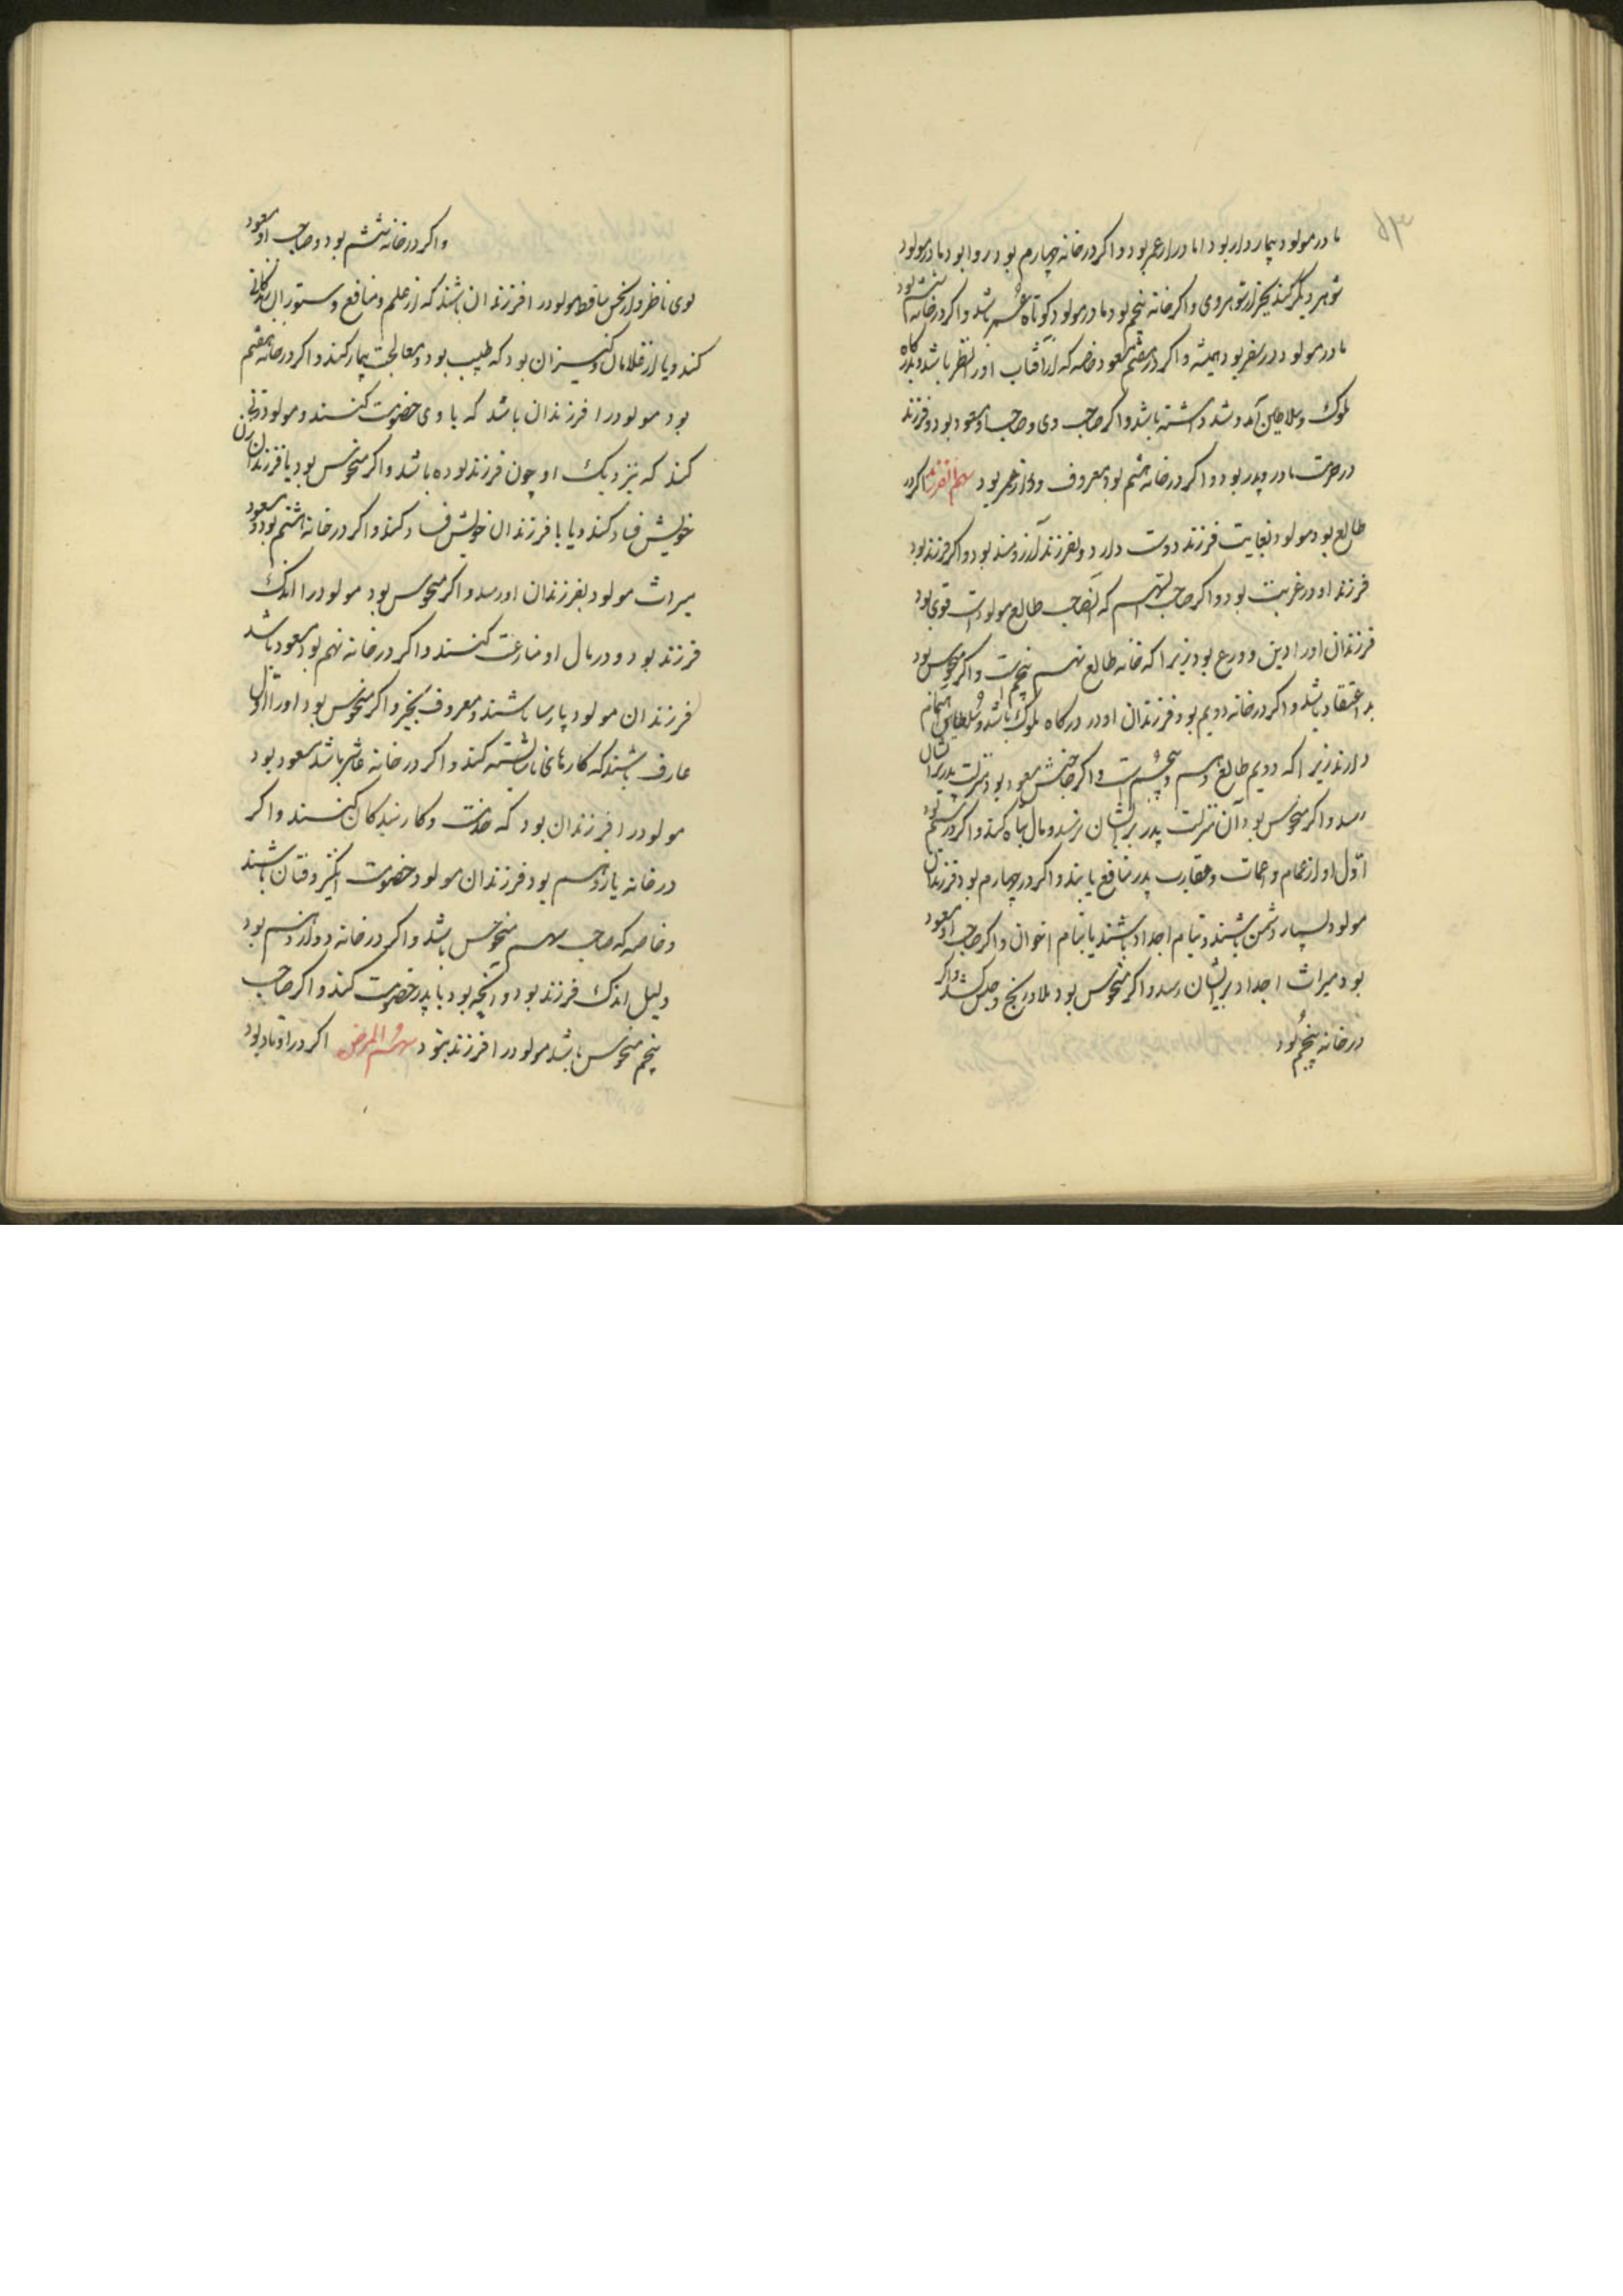 مادر مولود بیمار دار بود اما دراز عمر بود و اگر در خانه چهارم بود روا بود مادر مولود
شوهر دیگر کند بجز از شوهر وی و اگر خانه پنجم بود مادر مولود کوتاه عمر باشد و اگر در خانه ششم بود
مادر مولود در سفر بود همیشه و اگر در هفتم مسعود خاصه که از آفتاب او را نظر باشد و بدرگاه
ملوک و سلاطین آمد و شد داشته باشد و اگر صاحب وی و صاحب او مسعود بود و فرزند
در حرمت مادر و پدر بود و اگر در خانه هشتم بود معروف و دراز عمر بود سهم الفرزند اگر در
طالع بود مولود بغایت فرزند دوست دارد و بفرزند آرزومند بود و اگر فرزند بود
فرزند او در غربت بود و اگر صاحب السهم که صاحب طالع مولودست قوی بود
فرزندان او را دین و ورع بود زیرا که خانه طالع نهم پنجم است و اگر منحوس بود
بد اعتقاد باشد و اگر در خانه دویم بود فرزندان او در درگاه ملوک باشد و سلاطین
دارند زیرا که دویم طالع دهم پنجم است و اگر صاحبش مسعود بود منزلت پدر بر ایشان
رسد و اگر منحوس بود آن منزلت پدر بر ایشان نرسد و مال تباه کند و اگر در سیم بود
اول او از اعمام و عمات و عقارب پدر منافع یابند و اگر در چهارم بود فرزندان
مولود بسیار دشمن باشند و بنام اجداد باشند یا بنام اخوان و اگر صاحب او مسعود
بود میراث اجداد بر ایشان رسد و اگر منحوس بود بلا و رنج و حبس کشد و اگر
در خانه پنجم بود
و اگر در خانه ششم بود و صاحب او مسعود
بوی ناظر و از نحس ساقط مولود را فرزندان باشند که از علم و منافع و ستوران زندگانی
کند و یا از غلامان و کنیزان بود که طبیب بود و معالجت بیمار کند و اگر در خانه هفتم
بود مولود را فرزندان باشد که با وی خصومت کنند و مولود زنی
کند که نزدیک او چون فرزند بوده باشد و اگر منحوس بود با فرزندان زن
خویش فساد کند و یا با فرزندان خویش فساد کند و اگر در خانه هشتم بود و مسعود
میراث مولود بفرزندان او رسد و اگر منحوس بود مولود را اندک
فرزند بود و در مال او منازعت کنند و اگر در خانه نهم بود مسعود باشد
فرزندان مولود پارسا باشند و معروف بخیر و اگر منحوس بود او را
عارف باشند که کارهای ناشایسته کند و اگر در خانه عاشر باشد مسعود بود
مولود را فرزندان بود که خدمت و کار بندگان کنند و اگر
در خانه یازدهم بود فرزندان مولود خصومت انگیز و فتان باشند
و خاصه که صاحب سهم منحوس باشد و اگر در خانه دوازدهم بود
دلیل اندک فرزند بود و آنچه بود با پدر خصومت کند و اگر صاحب
پنجم منحوس باشد مولود را فرزند نبود سهم المرض اگر در اوتاد بود